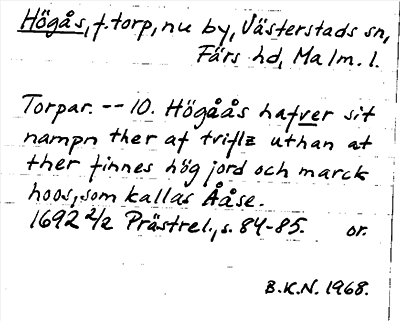 Högås, f. torp, nu by, Västerstads sn,
Färs hd, Malm. l.
Torpar. -- 10. Högåås hafver sit
nampn ther af triflz uthan at
ther finnes hög jord och marck
hoos, som kallas Ååse.
1692 2/2 Prästrel., s. 84-85. or.
B.K.N. 1968.